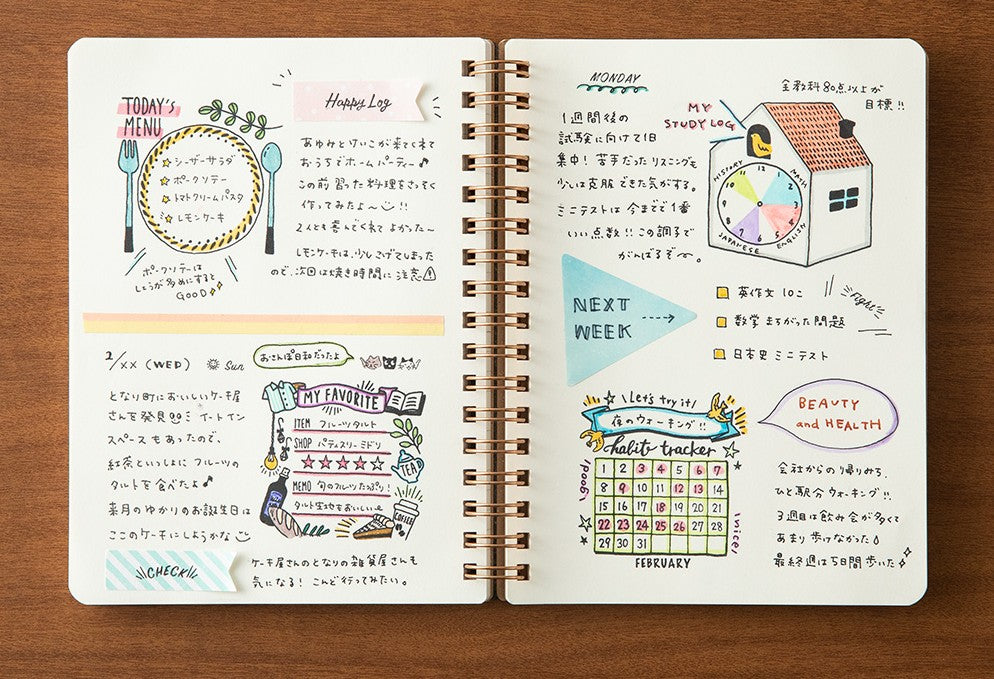 TODAY's
MENU
シーザーサラダ
ポークソテー
トマトクリームパスタ
レモンケーキ
ポークソテーは
しょうが多めにすると
GOOD
Happy Log
あゆみとけいこが来てくれて
おうちでホームパーティー♪
この前習った料理をさっそく
作ってみたよ〜!!
2人とも喜んでくれてよかった〜
レモンケーキは、少しこげてしまった
ので、次回は焼き時間に注意
2/xx (WED)
Sun
おさんぽ日和だったよ
となり町においしいケーキ屋
さんを発見 イートイン
スペースもあったので、
紅茶といっしょに フルーツの
タルトを食べたよ♪
来月のゆかりのお誕生日は
ここのケーキにしようかな
MY FAVORITE
ITEM フルーツタルト
SHOP パティスリーミドリ
★★★★☆
MEMO 旬のフルーツたっぷり!
タルト生地もおいしい
TEA
COFFEE
CHECK!
ケーキ屋さんのとなりの雑貨屋さんも
気になる! こんど行ってみたい。
MONDAY
1週間後の
試験に向けて1日
集中! 苦手だったリスニングも
少しは克服できた気がする。
ミニテストは今までで1番
いい点数!! この調子で
がんばるぞ〜。
MY
STUDY LOG
全教科80点以上が
目標!!
HISTORY
MATH
JAPANESE
ENGLISH
12
3
6
9
NEXT
WEEK
英作文 10こ
数学 まちがった問題
日本史 ミニテスト
Fight!
Let's try it!
夜のウォーキング!!
habit tracker
1 2 3 4 5 6 7
8 9 10 11 12 13 14
15 16 17 18 19 20 21
22 23 24 25 26 27 28
29 30 31
good!
nice!
FEBRUARY
BEAUTY
and HEALTH
会社からの帰りみち、
ひと駅分ウォーキング!!
3週目は飲み会が多くて
あまり歩けなかった
最終週は5日間歩いた